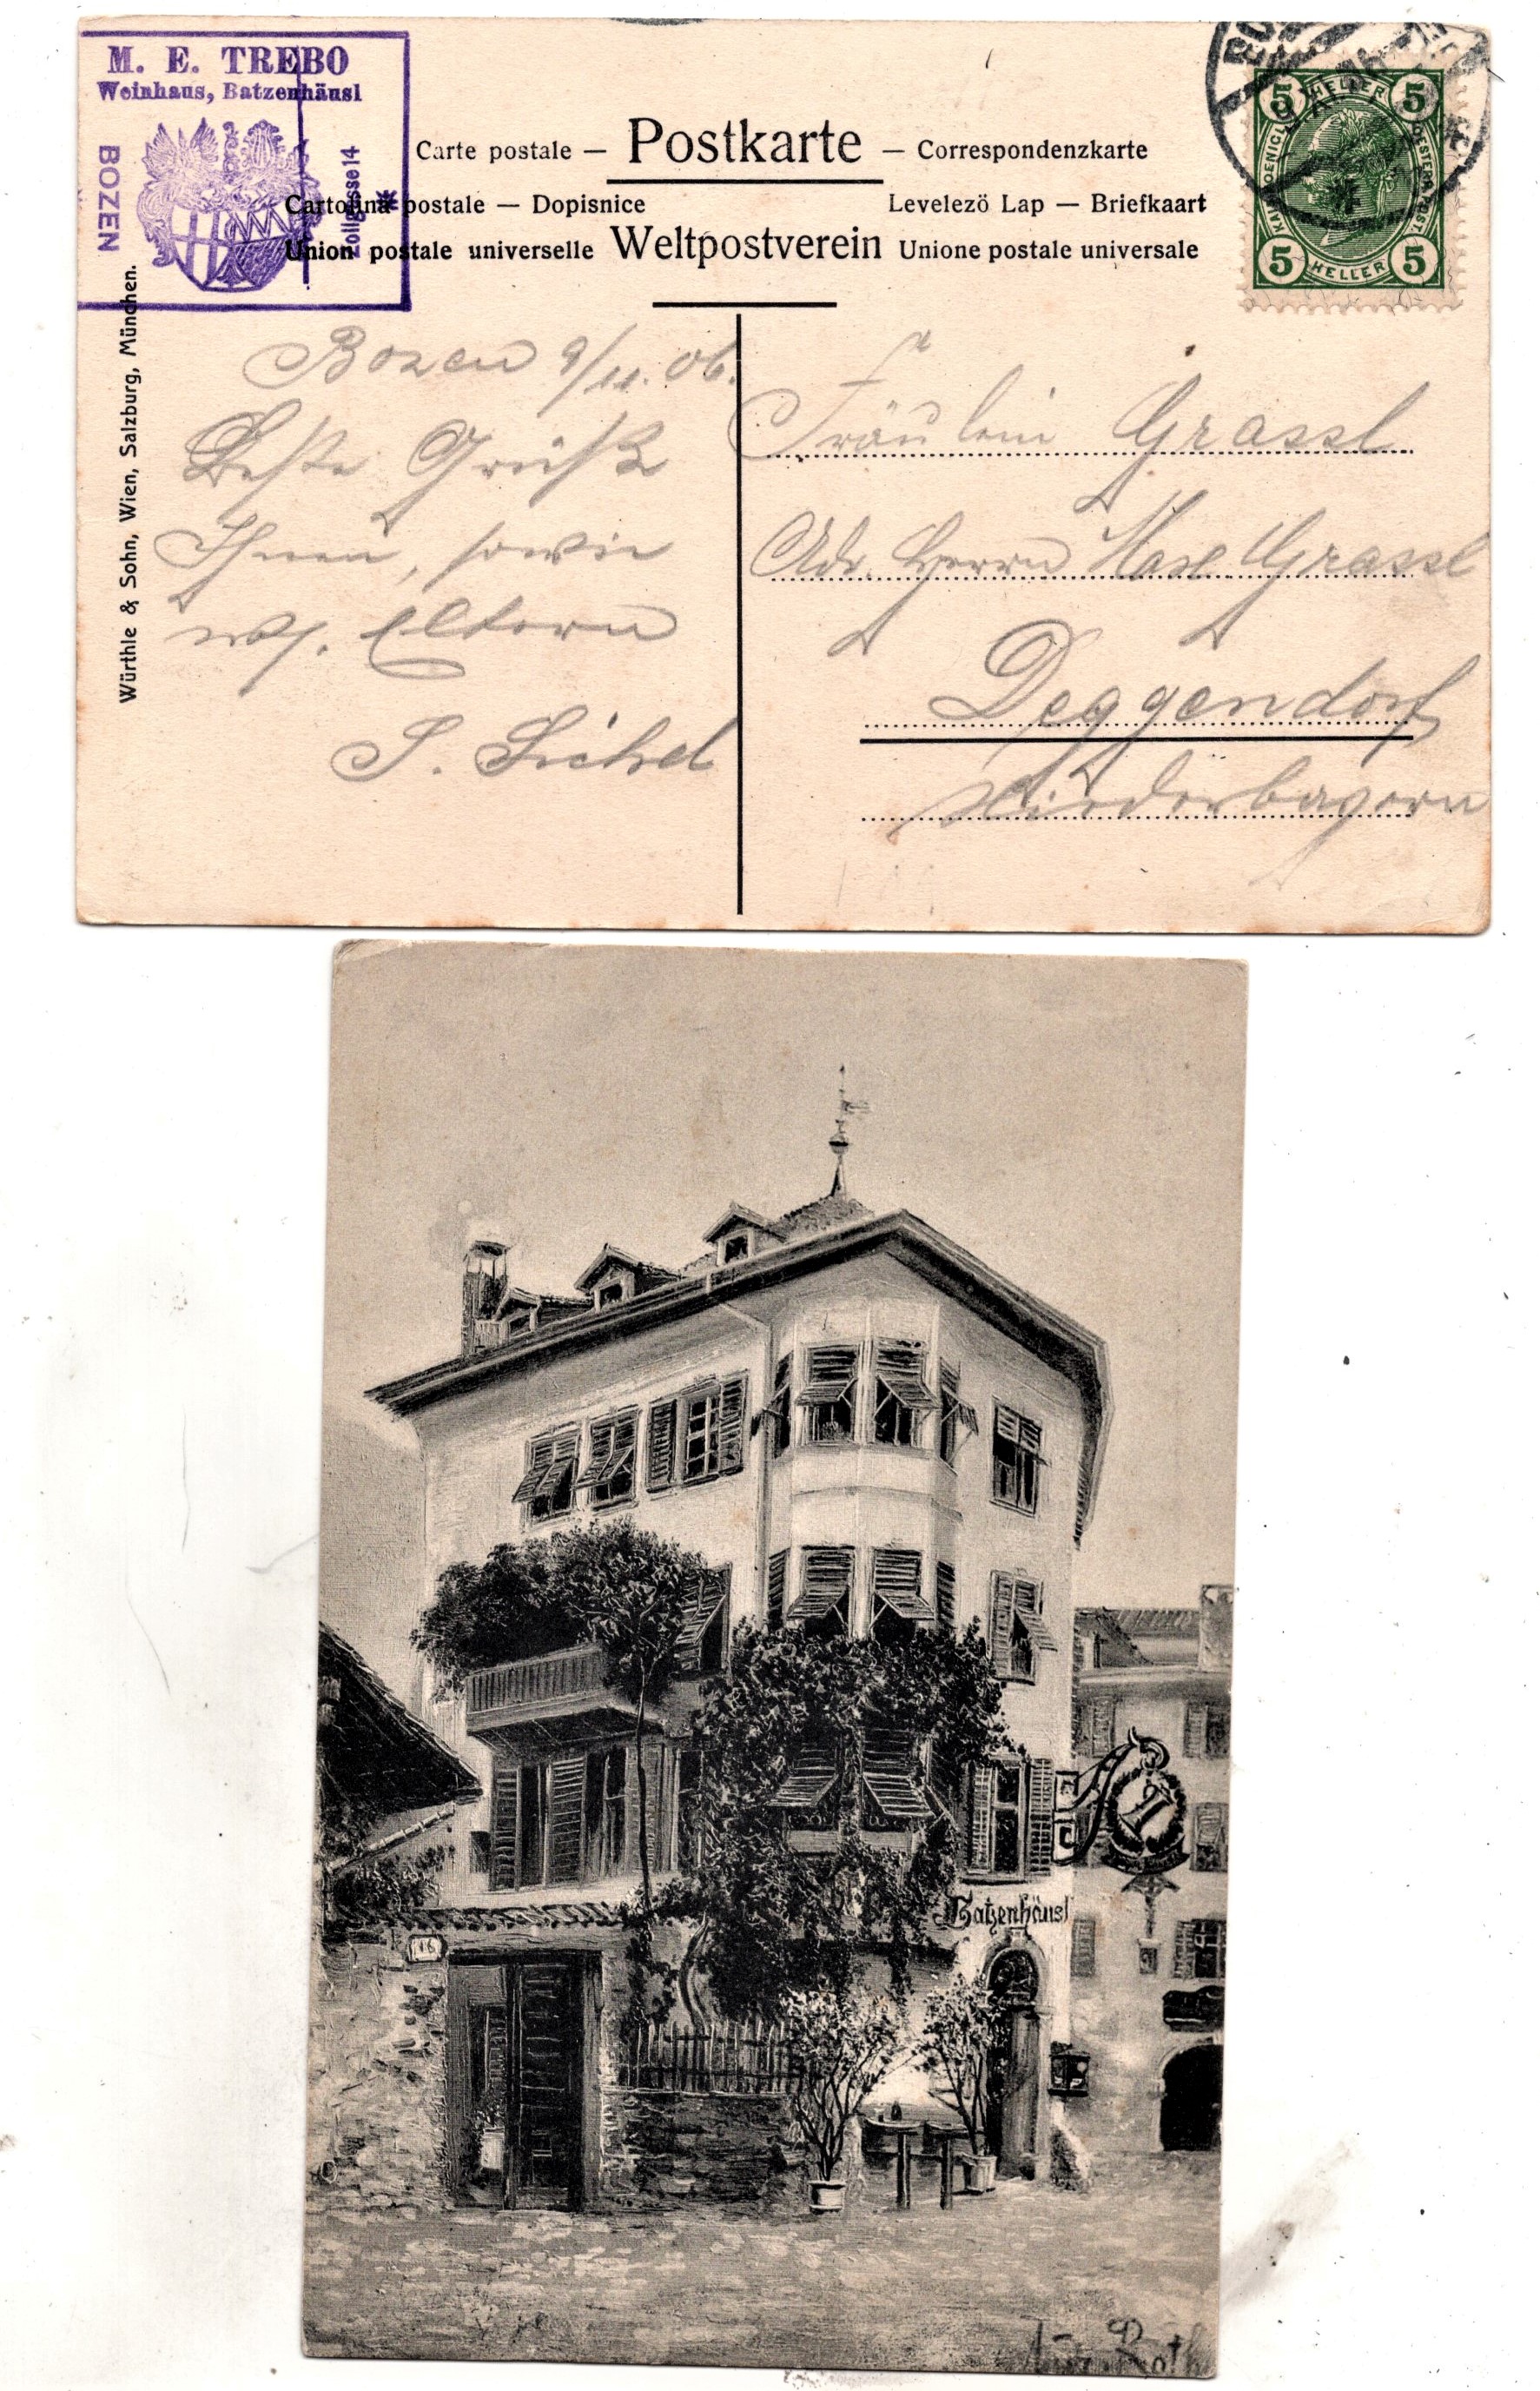 M. E. TREBO
Weinhaus, Batzenhäusl
BOZEN
Zollgasse 14
Carte postale — Postkarte — Correspondenzkarte
Cartolina postale — Dopisnice
Levelezö Lap — Briefkaart
Union postale universelle Weltpostverein Unione postale universale
5 HELLER 5
5 HELLER 5
Würthle & Sohn, Wien, Salzburg, München.
Bozen 9/11. 06.
Beste Grüße
Ihnen, sowie
Eltern
Fräulein Grassl
Adr. Herrn Grassl
Deggendorf
Niederbayern
Batzenhäusl
16
Roth